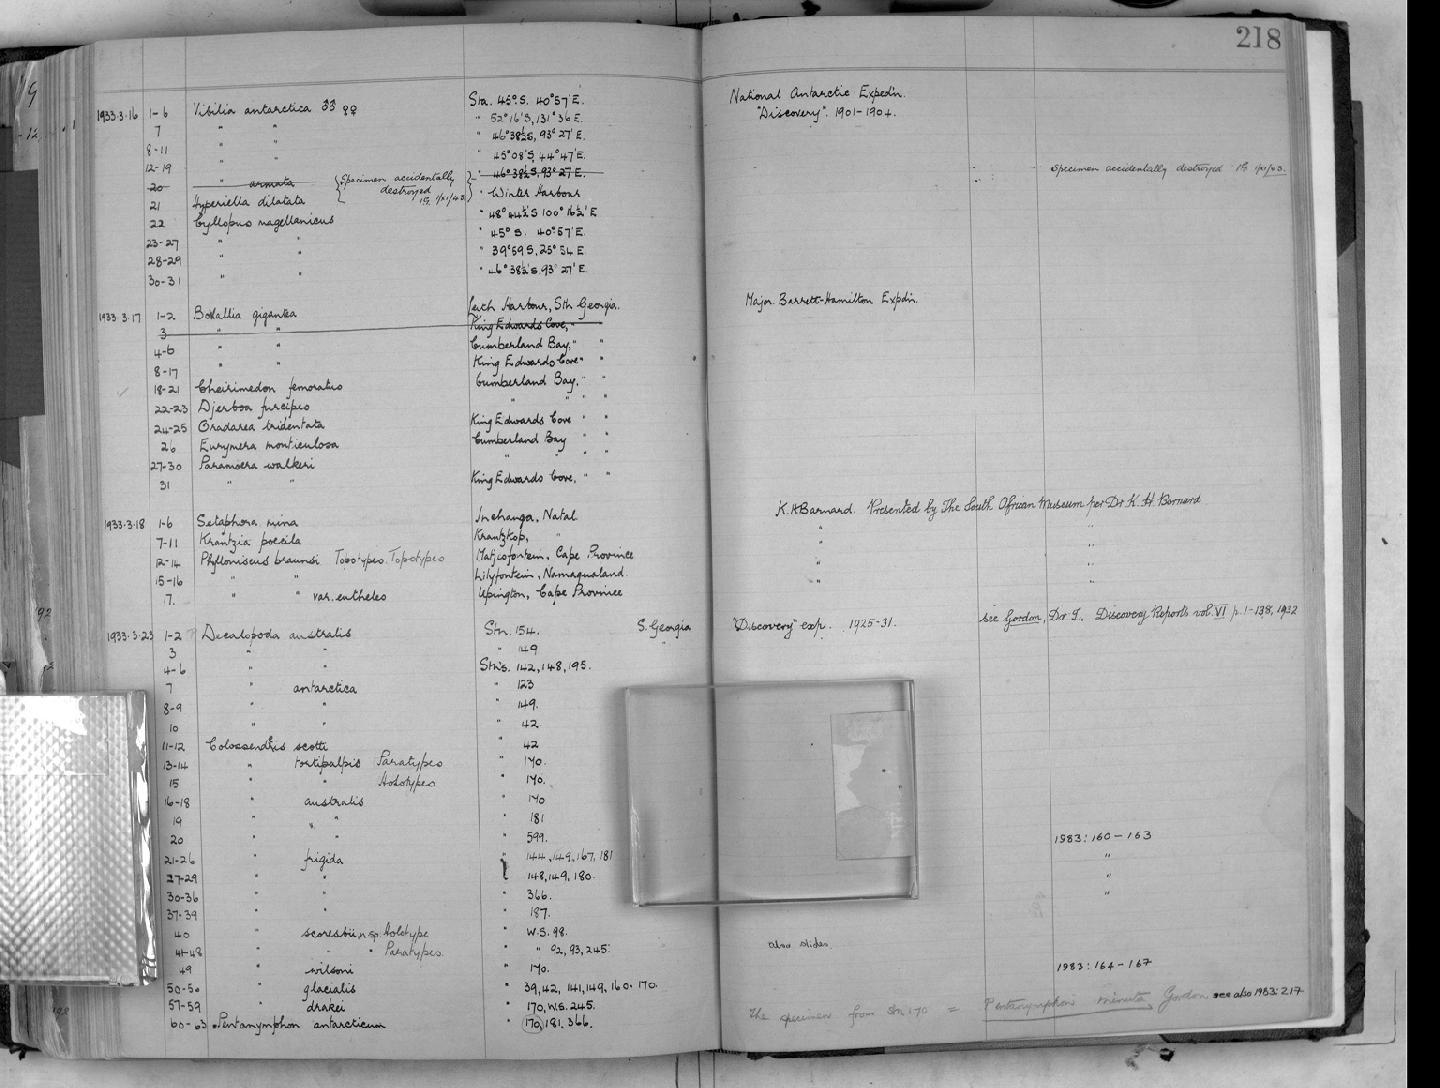 218
1933.3.16 1-6 Vibilia antarctica ♂♂ ♀♀ Sta. 45°S. 40°57'E. National Antarctic Expedn.
7 " " " 52°16'S, 131°36E. "Discovery". 1901-1904.
8-11 " " " 46°38½S, 93°27'E.
12-19 " " 45°08'S, 44°47'E.
20 armata {Specimen accidentally destroyed 46°38½S, 93°27'E. Specimen accidentally destroyed
21 Hyperiella dilatata " Winter Harbour
22 Cyllopus magellanicus " 48°44½'S 100°16½'E
23-27 " " " 45°S. 40°57'E.
28-29 " " " 39°59S, 25°54E.
30-31 " " " 46°38½'S, 93°27'E.
1933.3.17 1-2 Bovallia gigantea Leith Harbour, Sth Georgia. Major. Barrett-Hamilton Expdn.
3 " " King Edwards Cove, "
4-6 " " Cumberland Bay, " "
8-17 " " King Edwards Cove " "
18-21 Cheirimedon femoratus Cumberland Bay, " "
22-23 Djerboa furcipes " " " "
24-25 Oradarea tridentata King Edwards Cove " "
26 Eurymera monticulosa Cumberland Bay " "
27-30 Paramoera walkeri " " " "
31 " " King Edwards Cove, " "
1933.3.18 1-6 Setaphora mina Inchanga, Natal. K. H Barnard. Presented by The South African Museum per Dr K. H. Barnard
7-11 Krantzia poecila Krantzkop, " " "
12-14 Phylloniscus braunsi Topotypes. Topotypes Matjesfontein, Cape Province " "
15-16 " " Lilyfontein, Namaqualand. " "
17. " " var. entheles Upington, Cape Province
1933.3.23 1-2 Decalopoda australis Stn. 154. S. Georgia "Discovery" exp. 1925-31. see Gordon, Dr I., Discovery Reports vol. VI p. 1-138, 1932
3 " " " 149 "
4-6 " " Stn's. 142, 148, 195.
7 " antarctica " 123
8-9 " " " 149.
10 " " " 42
11-12 Colossendeis scotti " 42
13-14 " tortipalpis Paratypes " 170.
15 " " Holotypes " 170.
16-18 " australis " 170
19 " " " 181
20 " " 599. 1983:160-163
21-26 " frigida " 144, 149, 167, 181 "
27-29 " " 148, 149, 180. "
30-36 " " " 366. "
37-39 " " " 187.
40 " scoresbii, n.sp. Holotype " W.S. 98.
41-48 " " " Paratypes. " " 92, 93, 245. also slides.
49 " wilsoni " 170. 1983:164-167
50-56 " glacialis " 39, 42, 141, 149, 160. 170.
57-59 " drakei " 170, W.S. 245.
60-63 Pentanymphon antarcticum " 170, 181. 366. The specimen from Stn 170 = Pentanymphon minuta Gordon see also 1983:217